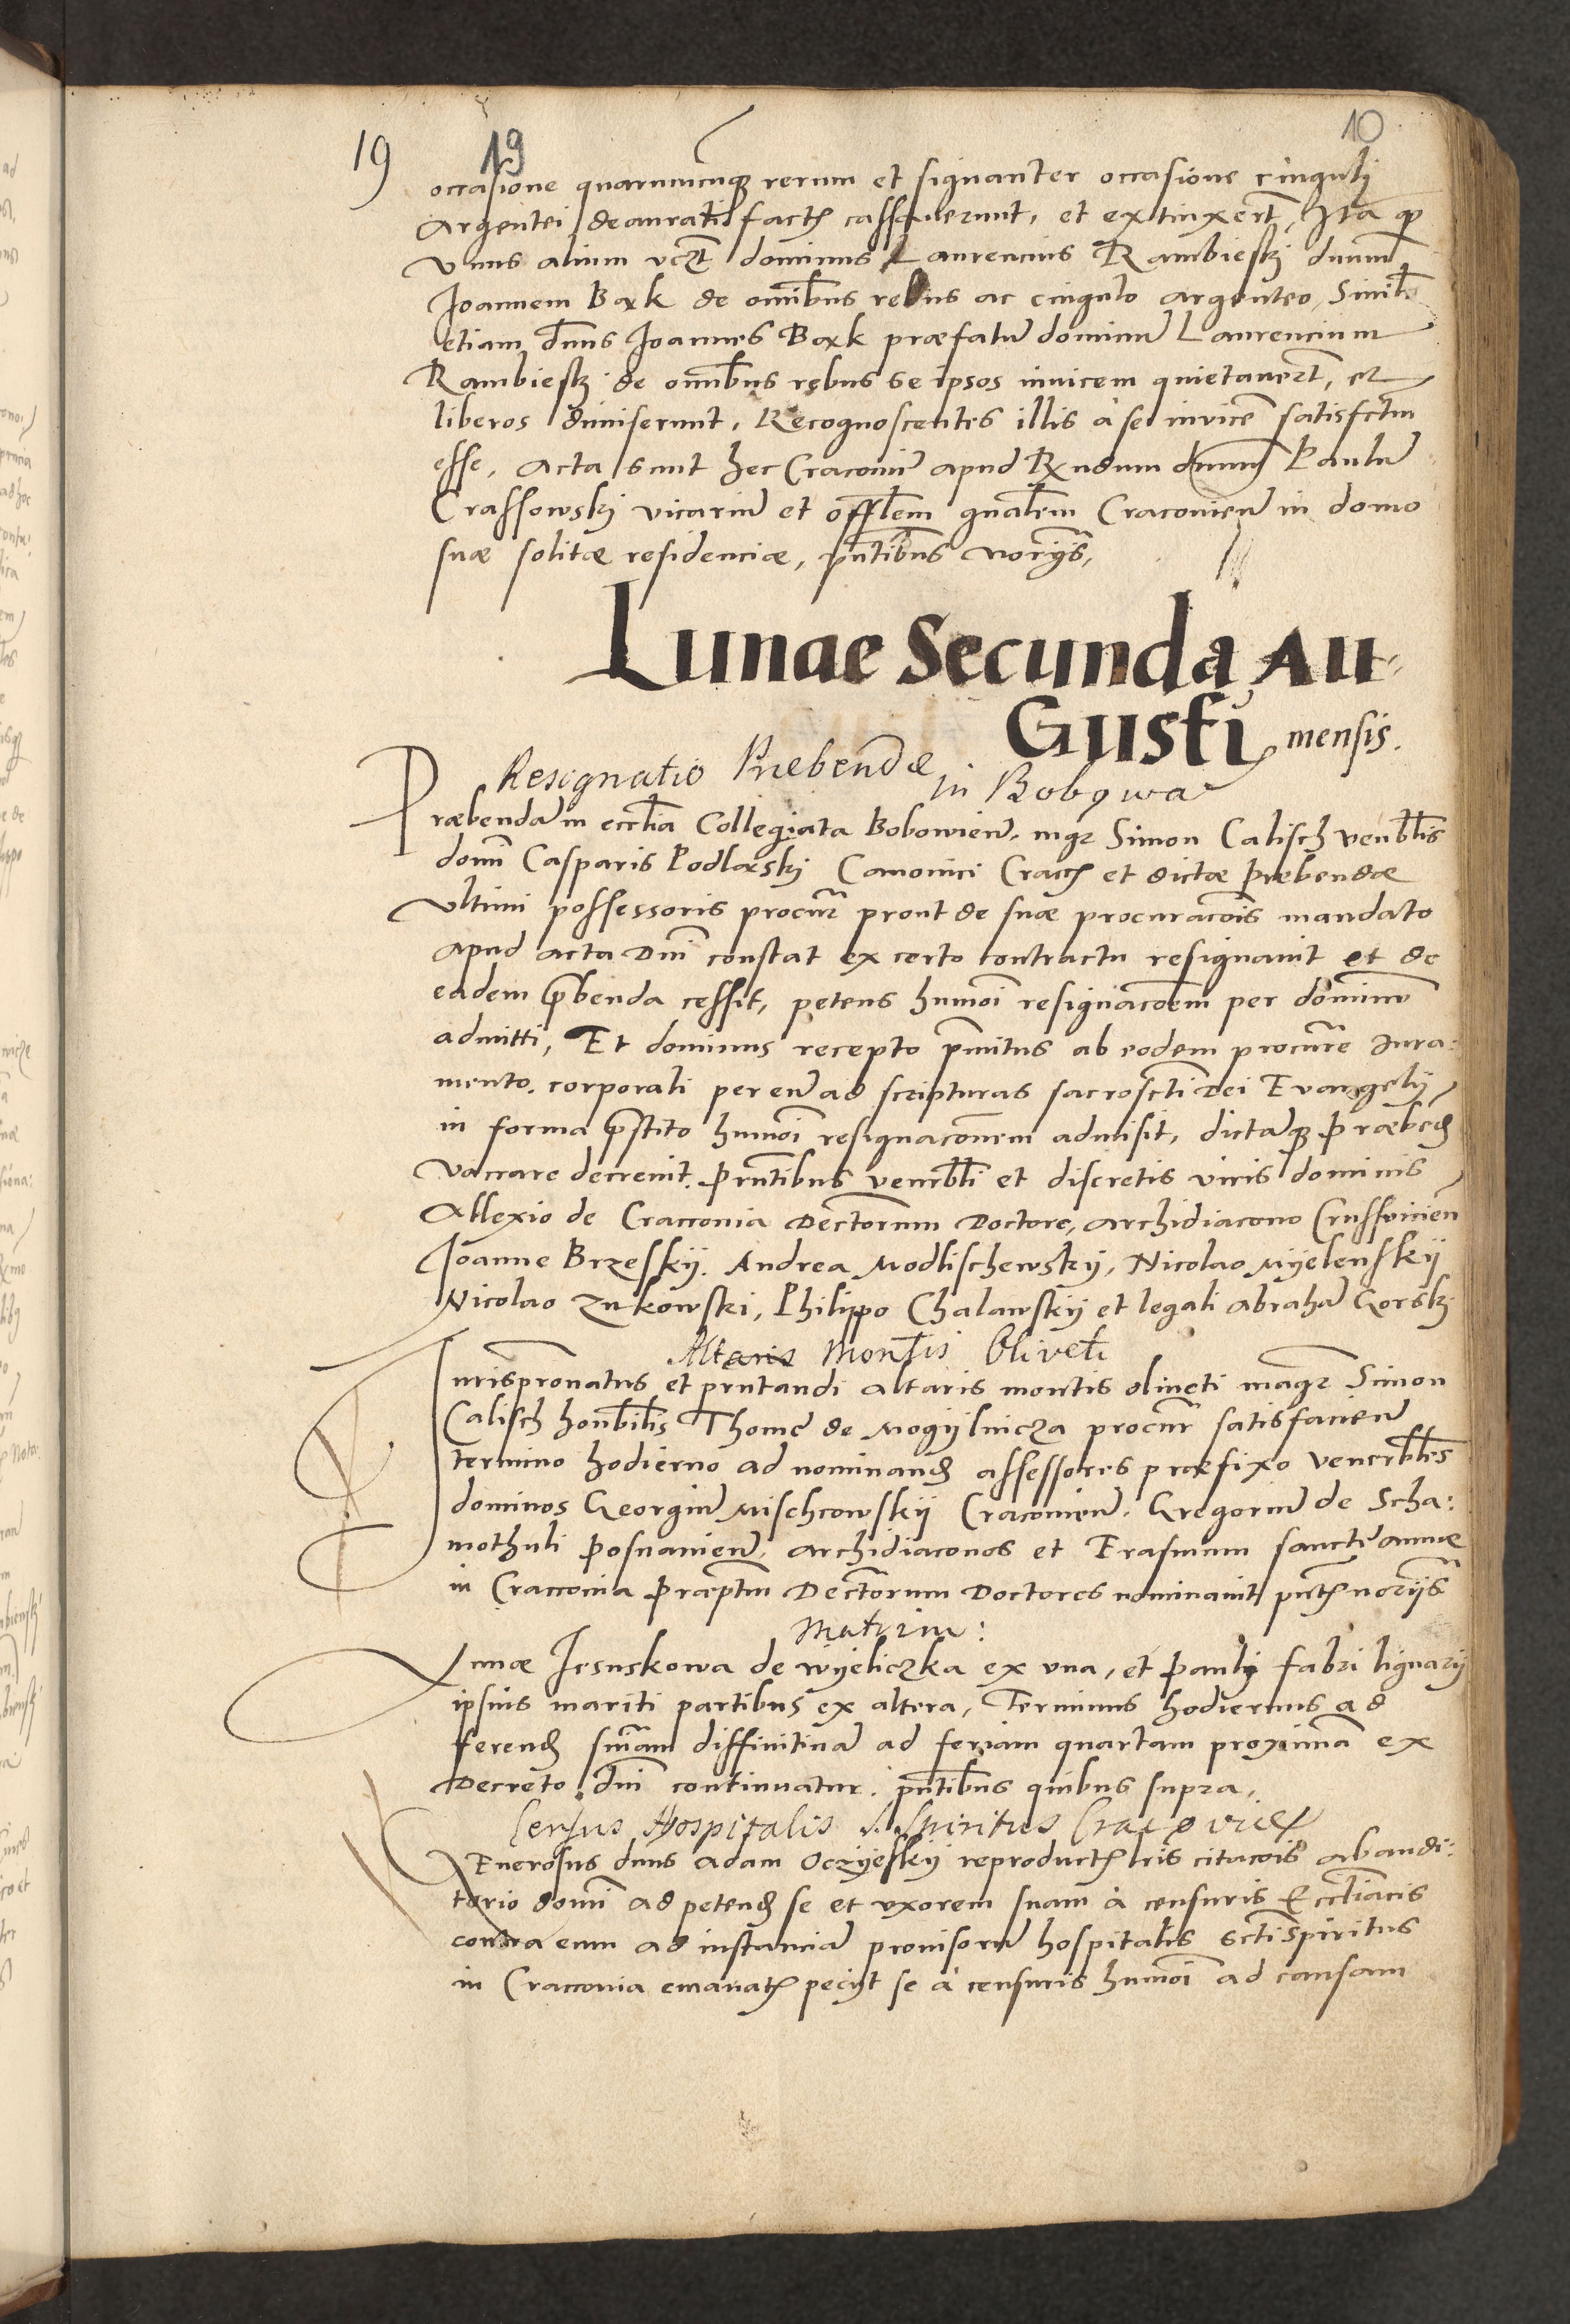 19 19 10
occasione quarumcunque rerum et signanter occasione cinguli
Argentei deaurati fact cassaverunt, et extinxert, Ita qd
Unus alium vczt dominus Laurencius Rambieski dnum
Joannem Bąk de omnibus rebus ac cingulo argenteo, Similr
etiam dnus Joannes Bąk præfatu dominu Laurencium
Rambieski de omnibus rebus se ipsos invicem quietavert, et
liberos dimiserunt, Recognoscentes illis a se invice satisfctm
esse, Acta sunt hec Cracovie apud Rndum dnum Paulu
Crassowski vicariu et offlem gnalem Cracovien in domo
suæ solitæ residenciæ, pntibus noriis,
Lunae Secunda Au-
Gusti mensis.
Resignatio Præbendæ
in Bobowa
Præbenda in ecclia Collegiata Bobowien. mgr Simon Calisch venblis
domi Casparis Podlaski Canonici Crac et dictæ præbendæ
Ultimi possessoris procur prout de suæ procuracois mandato
apud acta Dni constat ex certo contractu resignavit et de
eadem pbenda cessit, petens humoi resignacoem per dominu
admitti, Et dominus recepto pmitus ab eodem procure Jura:
mento. corporali per eu ad scripturas sacroscti Dei Evangelij
in forma pstito humoi resignaconem admisit, dictaq præbed
vaccare decrevit. Prntibus venerbli et discretis viris dominis
Allexio de Cracconia Dectorum Doctore, Archidiacono Crusſvicien
Joanne Brzeskij. Andrea Modlischewskij, Nicolao Mijelenskij
Nicolao Zukowski, Philippo Chalawskij et legali Abraha Gorski
Altaris Montis Oliveti
Jurispronatus et prntandi altaris montis oliveti magr Simon
Calisch honbilis Thome de Mogijlnicza procur satisfacien
termino hodierno ad nominand assessores præfixo venerbles
dominos Georgiu Mischcowskij Cracovien. Gregoriu de Scha:
mothuli Posnanien. archidiaconos et Erasmum sancte annæ
in Cracconia Præptm Dectorum Doctores nominavit pnt noriis
Matrim:
Annæ Jesuskowa de Wijeliczka ex una, et Pauli fabri lignarij
ipsius mariti partibus ex altera, Terminus hodiernus ad
ferend sniam diffinitiva ad feriam quartam proxima ex
Decreto dni continuatur. pntibus quibus supra,
Census Hospitalis S. Spiritus Cracoviæ
GEnerosus dnus Adam Oczijeskij reproduct lris citacois ab audi:
torio domi ad petend se et uxorem suam a censuris Eccliacis
contra eum ad instancia provisoru hospitalis scti spiritus
in Cracconia emanat peciit se a censuris humoi ad causam